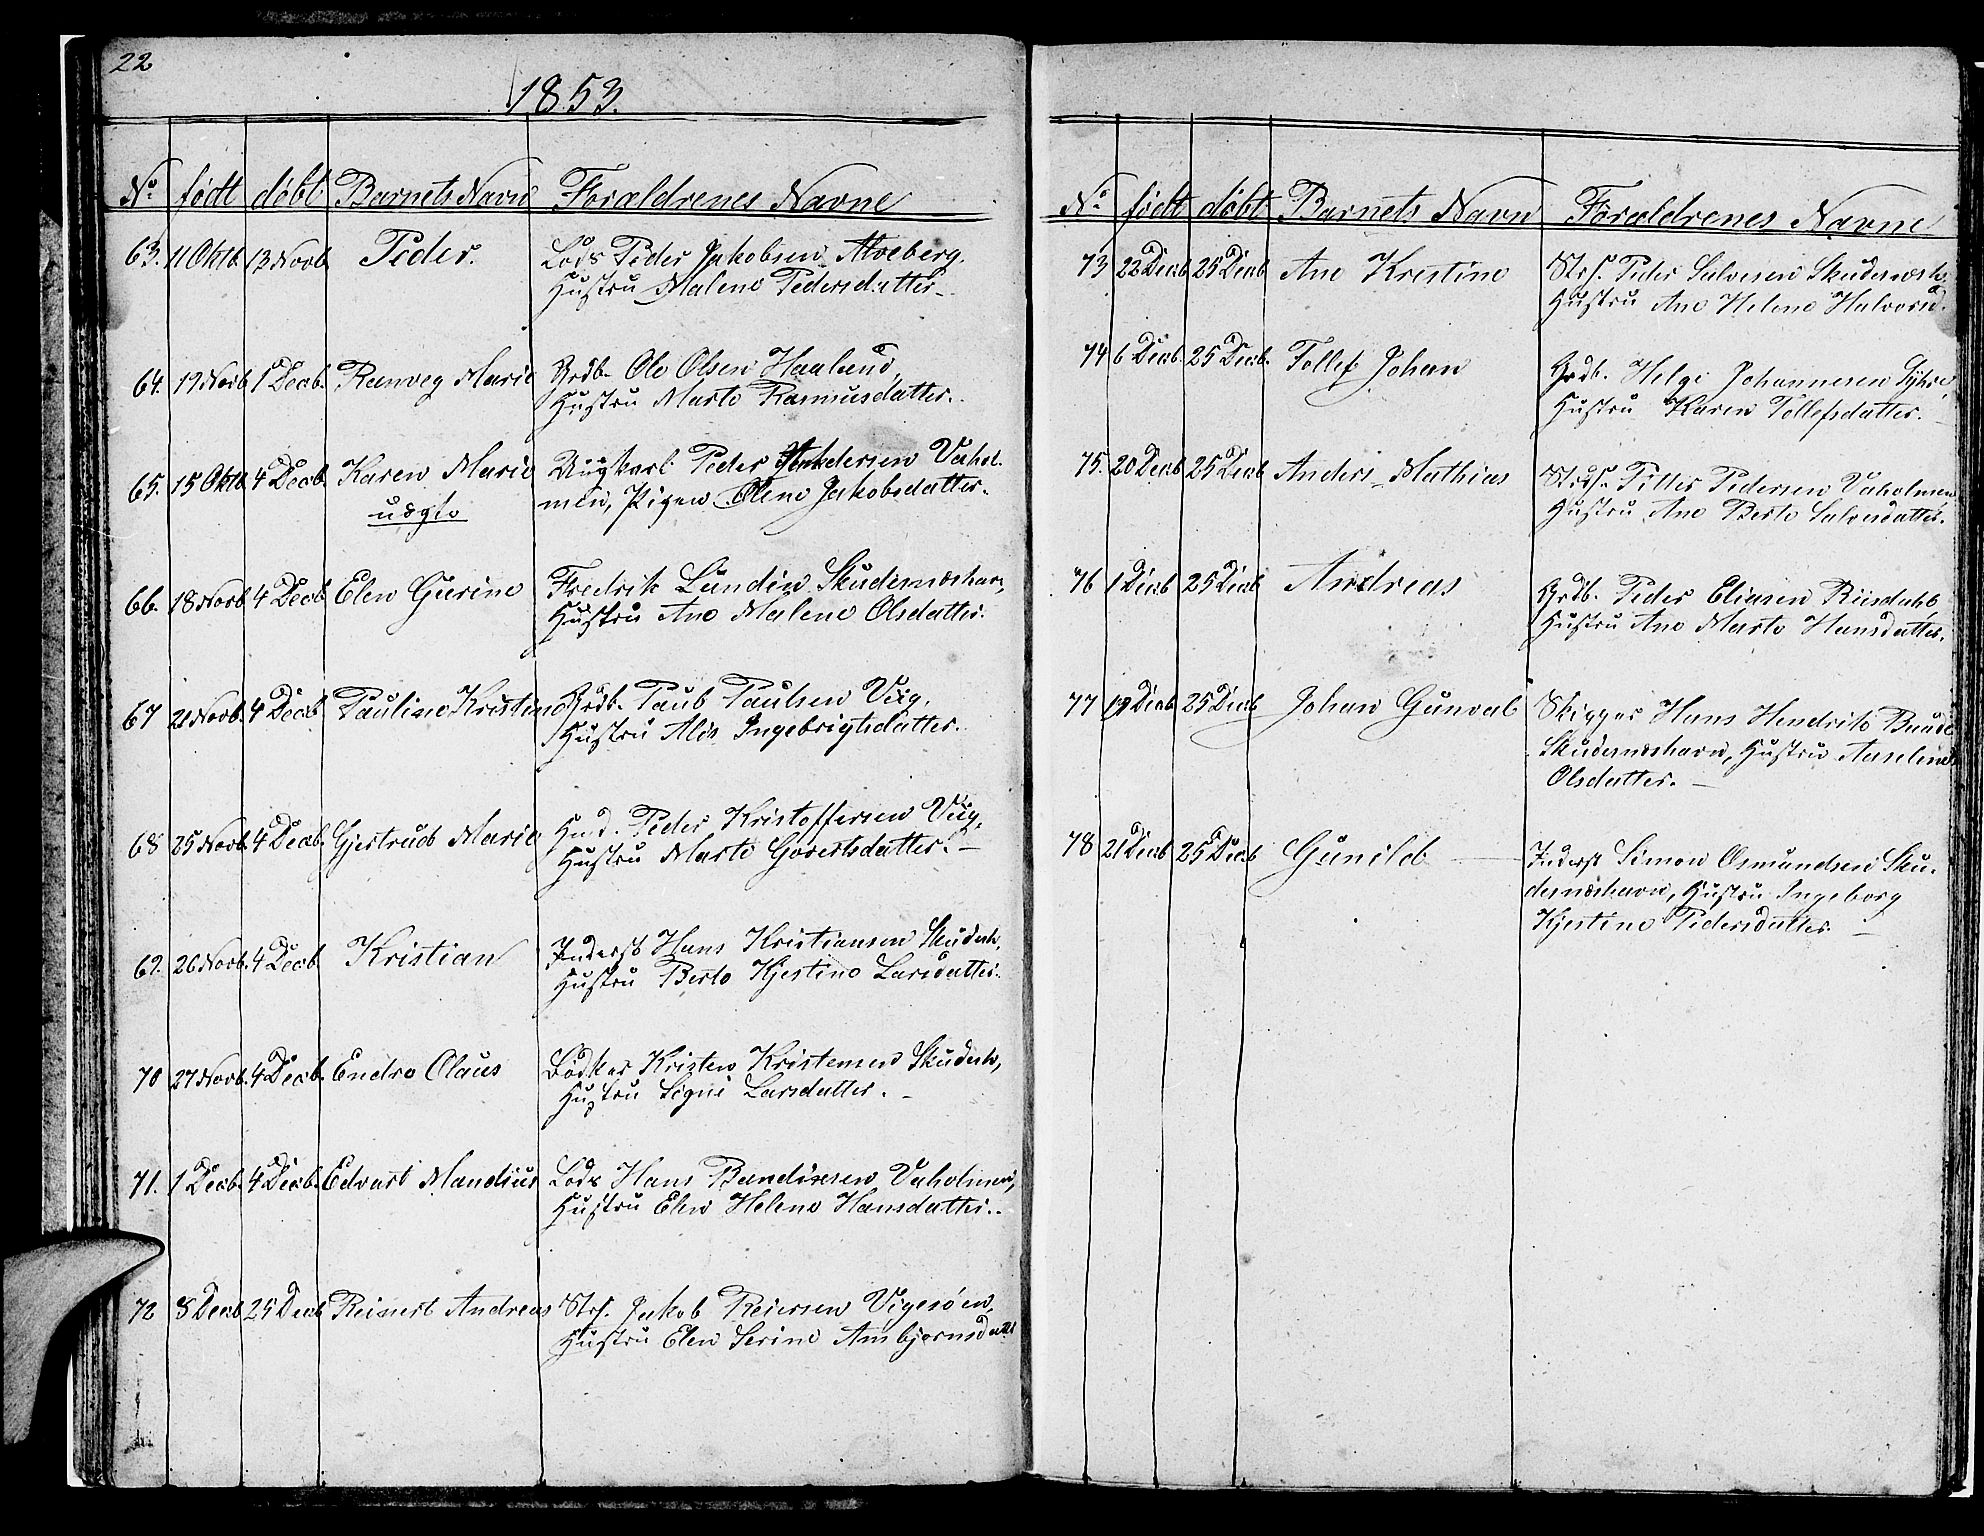 22
1853.
No. født døbt Barnets Navn Forældrenes Navne
63. 11 Oktb. 13 Novb. Peder. Lods Peder Jakobsen Alveberg.
Hustru Malene Pedersdatter
64. 19 Novb. 1 Decb. Ranveg Marie Grdb. Ole Olsen Haaland,
Hustru Marte Rasmusdatter.
65. 15 Oktb. 4 Decb. Karen Marie Ungkarl Peder Andersen Vahol-
uægte men, Pigen Olene Jakobsdatter.
66. 18 Novb. 4 Decb. Elen Gurine Fredrik Lundin Skudesnæshavn,
Hustru Ane Malene Olsdatter.
67 21 Novb. 4 Decb. Pauline Kristine Grdb. Paul Paulsen Viig,
Hustru Alis Ingebrigtsdatter.
68 25 Novb. 4 Decb. Gjertrud Marie Husmd. Peder Kristoffersen Viig,
Hustru Marte Govertsdatter.
69. 26 Novb. 4 Decb. Kristian Inderst Hans Kristiansen Skudesh,
Hustru Berte Kjestine Larsdatter.
70 27 Novb. 4 Decb. Endre Olaus Bødker Kristen Kristensen Skudesh,
Hustru Signe Larsdatter.
71. 1 Decb. 4 Decb. Edvart Mandius Lods Hans Bendixsen Vaholmen,
Hustru Elen Helene Hansdatter.
72 8 Decb 25 Decb Reinert Andreas Strs. Jakob Reiersen Vigesøen,
Hustru Elen Serine Ambjørnsdatt
No. født døbt Barnets Navn Forældrenes Navne
73 22 Decb 25 Decb Ane Kristine Strs. Peder Salvesen Skudesnæsh.
Hustru Ane Helene Halvorsd.
74 6 Decb. 25 Decb. Tollef Johan Grdb. Helge Johannesen Syhre,
Hustru Karen Tollefsdatter.
75. 20 Decb 25 Decb Anders Mathias Strs. Peder Pedersen Vaholmen,
Hustru Ane Berte Salvesdatter.
76 1 Decb 25 Decb Andreas Grdb. Peder Eliasen Riisdahl
Hustru Ane Marte Hansdatter.
77 19 Decb 25 Decb Johan Gunval Skipper Hans Hendrik
Skudesnæshavn, Hustru Aaseline
Olsdatter.
78 21 Decb 25 Decb Gunild Inderst Simon Osmundsen Sku-
desnæshavn, Hustru Ingeborg
Kjestine Pedersdatter.